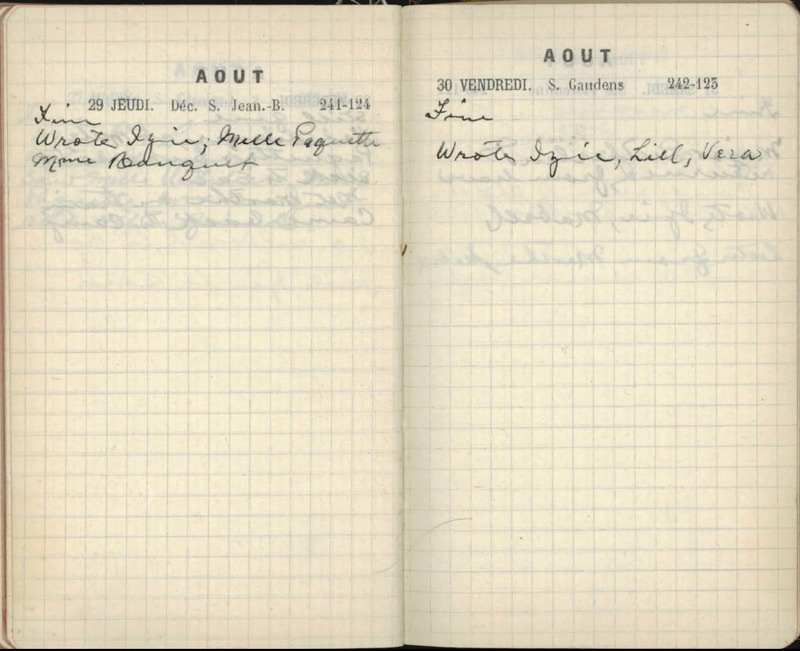 AOUT
29 JEUDI. Déc. S. Jean.-B. 241-124
Fine
Wrote Izie, Melle Paquette
Mme Banquet
AOUT
30 VENDREDI. S. Gaudens 242-123
Fine
Wrote Izie, Lill, Vera